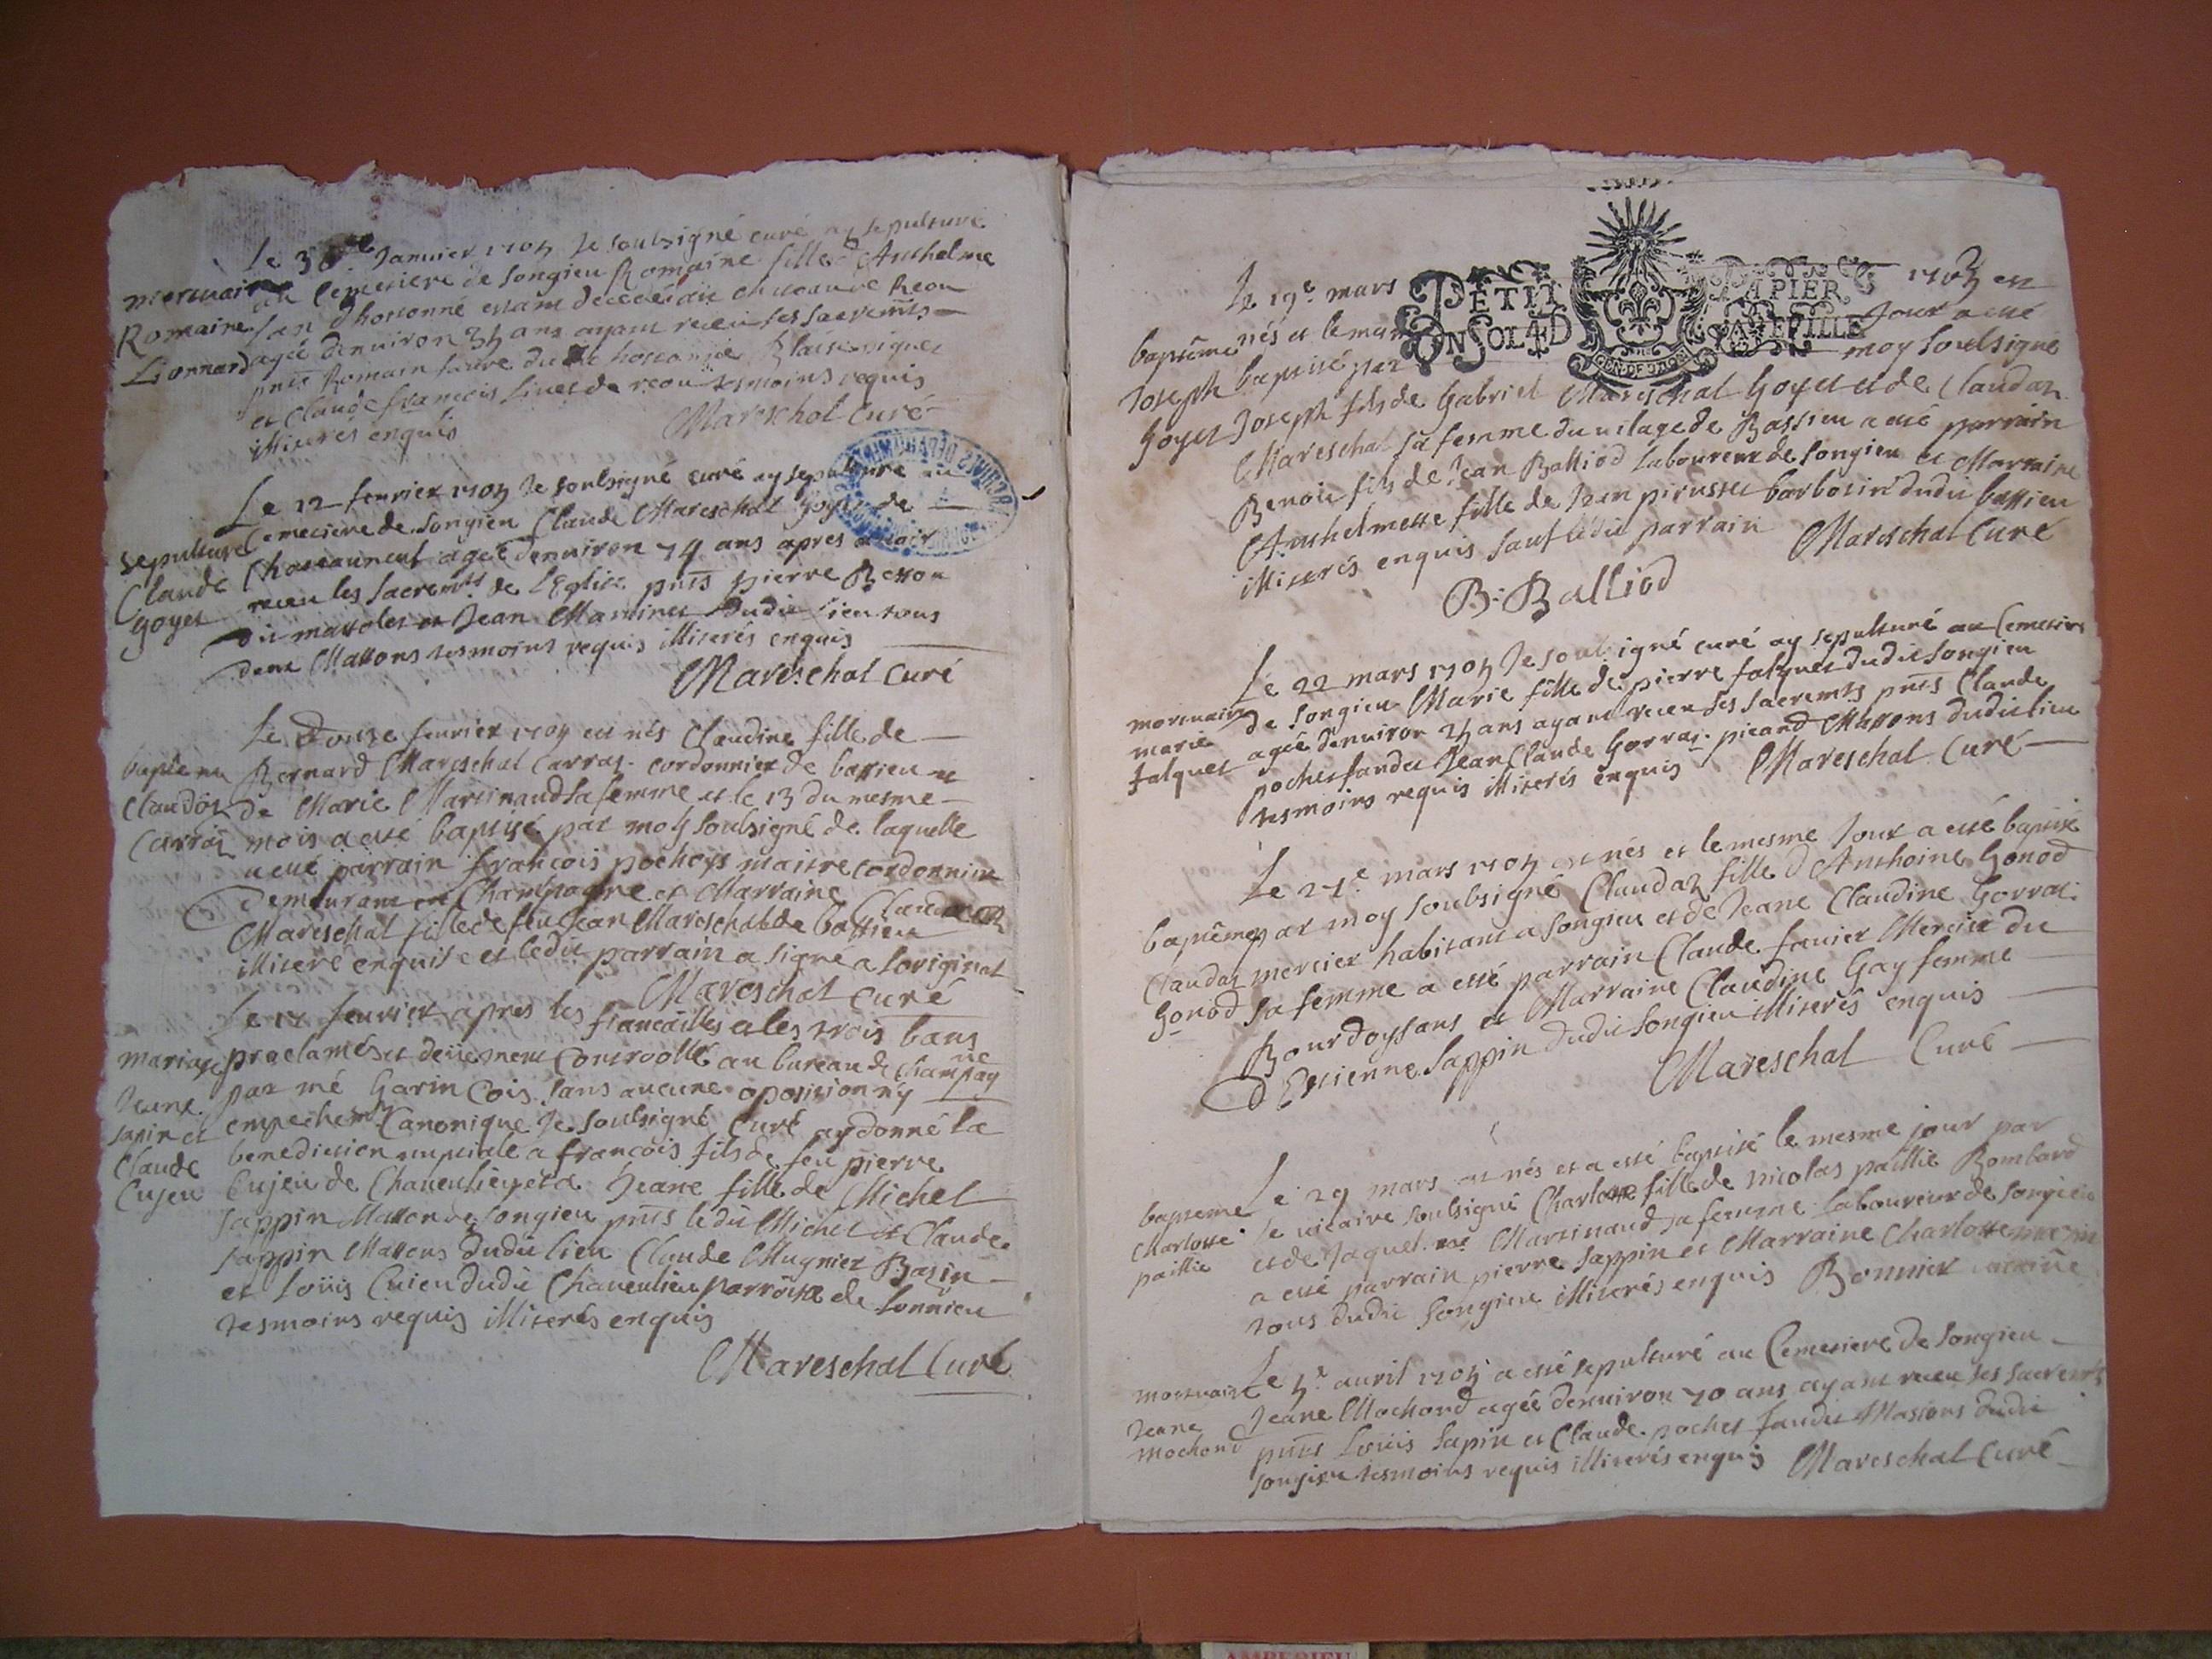 Le 30e Janvier 1705 Je soubsigné curé ay sepulturé
mortuaire au Cemetiere de Songieu Romaine fille d'Anthelme
Romaine
Lionnard agée denviron 35 ans ayant receu ses sacremts
et Claude françois tesmoins requis
illiterés enquis Mareschal Curé
Le 12 fevrier 1705 Je soubsigné curé ay sepulturé au
Cemetiere de Songieu Claude Mareschal Goyet de
sepulture
Claude agée denviron 74 ans apres avoir
Goyet receu les sacremts de l'Eglise pnts pierre Besson
dit et Jean Martinet dudit lieu tous
deux Massons tesmoins requis illiterés enquis
Mareschal Curé
Le Douze fevrier 1705 est nés Claudine fille de
Bernard Mareschal Carraz cordonnier de bassieu et
Claudine de Marie Martinaud sa femme et le 13 du mesme
Carraz mois a esté baptisé par moy soubsigné de laquelle
a esté parrain françois pocheys maitre cordonnier
Demeurant en Champagne et Marraine Claudaz
Mareschal fille de feu Jean Mareschal de bassieu
illiteré enquise et ledit parrain a signé a loriginal
Mareschal Curé
Le 17 fevrier apres les fiancailles a les trois bans
mariage proclamés et deüement Controollé au bureau de Champagne
par mé Garin Cois sans aucune oposition ny
Jeane
sapin et empechemt Canonique Je soubsigné Curé ay donné la
Claude benediction nuptiale a françois fils de feu pierre
Cujeu Cujeu de Chavenlieu et a Jeane fille de Michel
Sappin Masson de Songieu pnts ledit Michel et Claude
Sappin Massons dudit lieu Claude Mugnier Bazin
et Loüis Cuieu dudit Chavenlieu parroisse de Lonnieu
tesmoins requis illiterés enquis
Mareschal Curé
Le 19e mars 1705 est
PETIT PAPIER
UN SOL 4 D LA FEUILLE
baptême nés et le mesme Jour a esté
Joseph baptisé par moy soubsigné
Goyet Joseph fils de Gabriel Mareschal Goyet et de Claudaz
Mareschal sa femme du vilage de Bassieu a esté parrain
Benoit fils de Jean Balliod laboureur de Songieu et Marraine
Anthelmette fille de Jean pirusset barbotin dudit bassieu
illiterés enquis sauf ledit parrain Mareschal Curé
B. Balliod
Le 22 mars 1705 Je soubsigné curé ay sepulturé au Cemetiere
mortuaire de Songieu Marie fille de pierre falquet dudit Songieu
marie
falquet agée denviron 25 ans ayant receu ses sacremts pnts Claude
pochet fandet Jean Claude Gorraz picand Massons dudit lieu
tesmoins requis illiterés enquis Mareschal Curé
Le 27e mars 1705 est nés et le mesme Jour a esté baptisé
baptême par moy soubsigné Claudaz fille d'Anthoine Gonod
Claudaz mercier habitant a Songieu et de Jeane Claudine Gorraz
Gonod sa femme a esté parrain Claude favier Mercier du
Bourdoysans et Marraine Claudine Gay femme
d'Estienne Sappin dudit Songieu illiterés enquis
Mareschal Curé
Le 29 mars est nés et a esté baptisé le mesme jour par
bapteme
Charlotte Je vicaire soubsigné Charlotte fille de Nicolas paillie Bombard
paillie et de Martinaud sa femme laboureur de Songieu
a esté parrain pierre Sappin et Marraine Charlotte
tous dudit Songieu illiterés enquis Bonnier vicaire
Le 5e avril 1705 a esté sepulturé au Cemetiere de Songieu
mortuaire
Jeane Jeane Mochond agée denviron 70 ans ayant receu ses sacremts
mochond pnts Loüis Sapin et Claude pochet fandet Massons dudit
Songieu tesmoins requis illiterés enquis Mareschal Curé